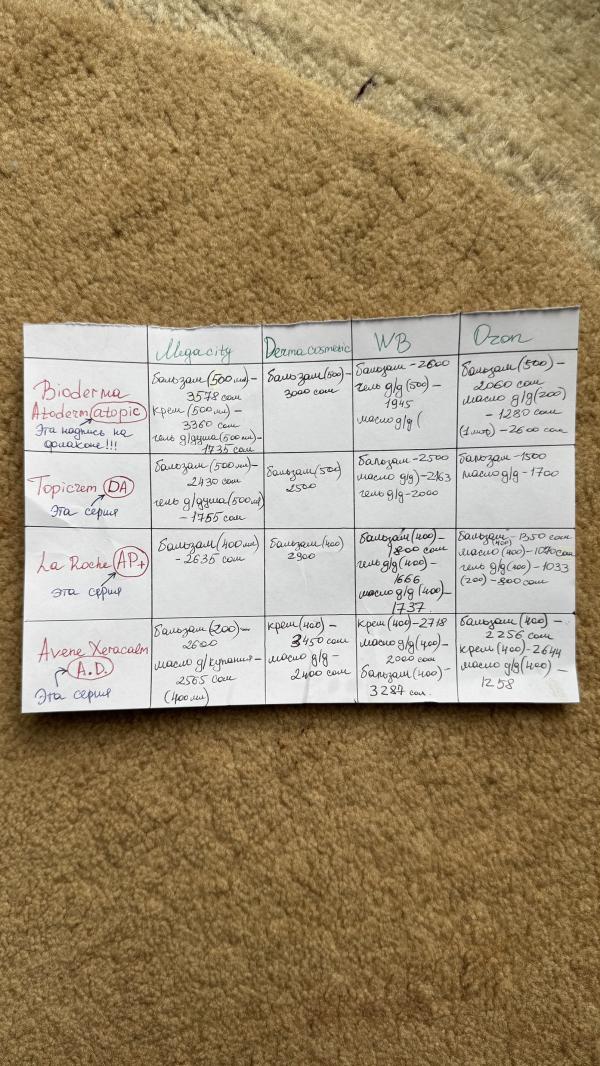 Megacity
Dermacosmetic
WB
Ozon
Bioderma
Atoderm atopic
Эта надпись на
флаконе!!!
бальзам (500 мл) –
3578 сом
крем (500 мл) –
3360 сом
гель д/душа (500 мл) –
1735 сом
бальзам (500) –
3000 сом
бальзам – 2600
гель д/д (500) –
1945
масло д/д (
бальзам (500) –
2060 сом
масло д/д (200)
– 1280 сом
– 2600 сом
Topicrem DA
Эта серия
бальзам (500 мл) –
2430 сом
гель д/душа (500 мл)
– 1755 сом
бальзам (500)
2500
бальзам – 2500
масло д/д) – 2163
гель д/д – 2000
бальзам – 1500
масло д/д – 1700
La Roche AP+
Эта серия
бальзам (400 мл)
– 2635 сом
бальзам (400)
2900
бальзам (400) –
1800 сом
гель д/д (400) –
1666
масло д/д (400) –
1737
бальзам (400) – 1350 сом
масло (400) – 1070 сом
гель д/д (400) – 1033
(200) – 800 сом
Avene Xeracalm
A.D.
Эта серия
бальзам (200) –
2600
масло д/купания –
2565 сом
(400 мл)
крем (400) –
3450 сом
масло д/д –
2400 сом
крем (400) – 2718
масло д/д (400) –
2000 сом
бальзам (400) –
3287 сом.
бальзам (400) –
2256 сом
крем (400) – 2644
масло д/д (400) –
1258